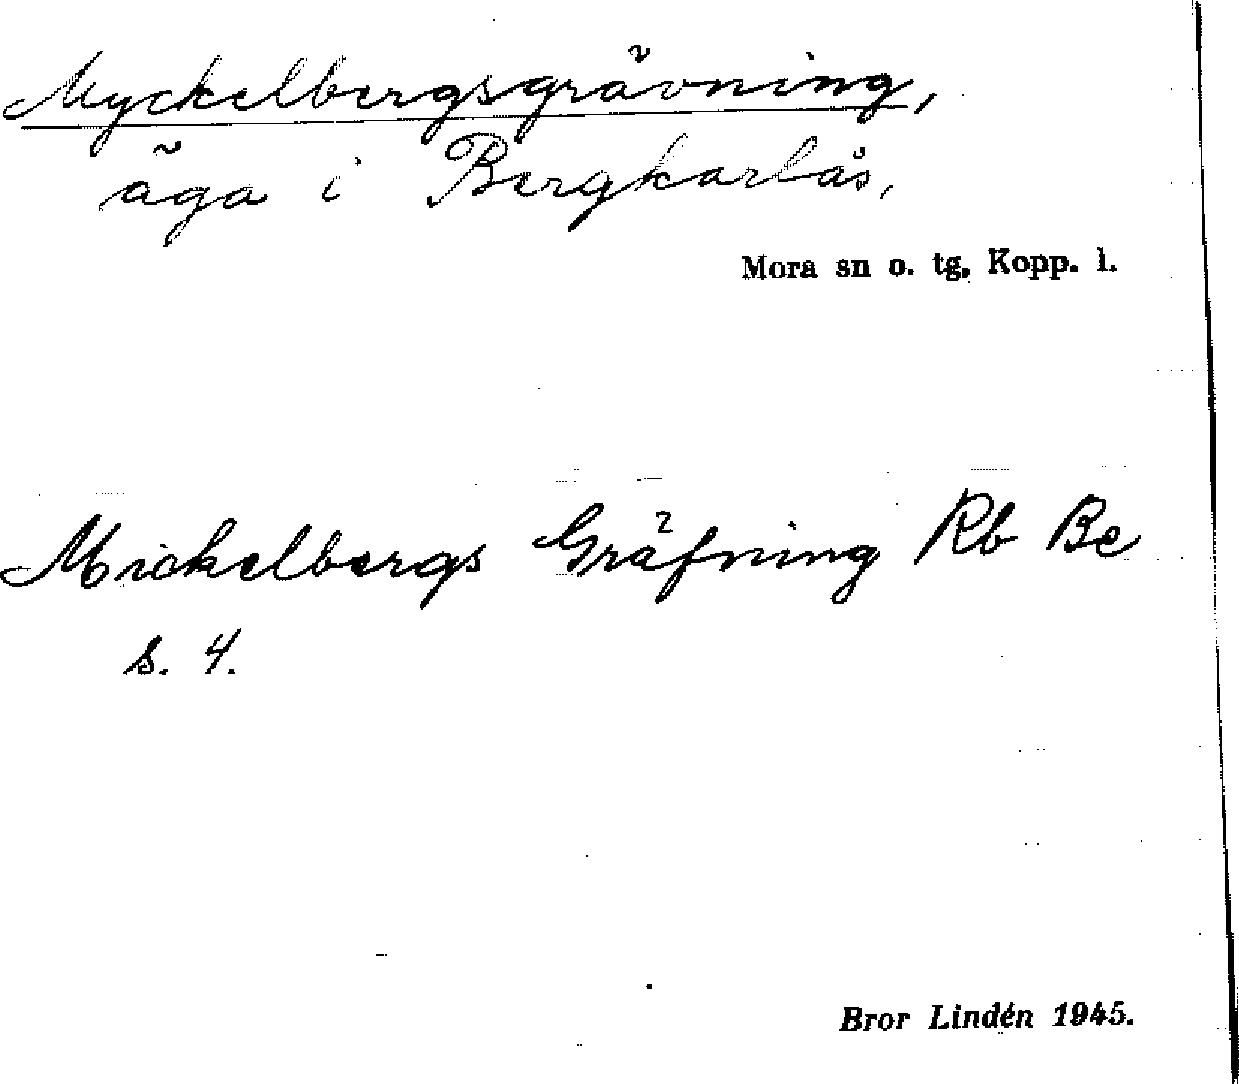 Myckelbergsgrävning,
äga i Bergkarlås,
Mora sn o. tg, Kopp. l.
Mickelbergs Gräfning Rb Be
s. 4.
Bror Lindén 1945.